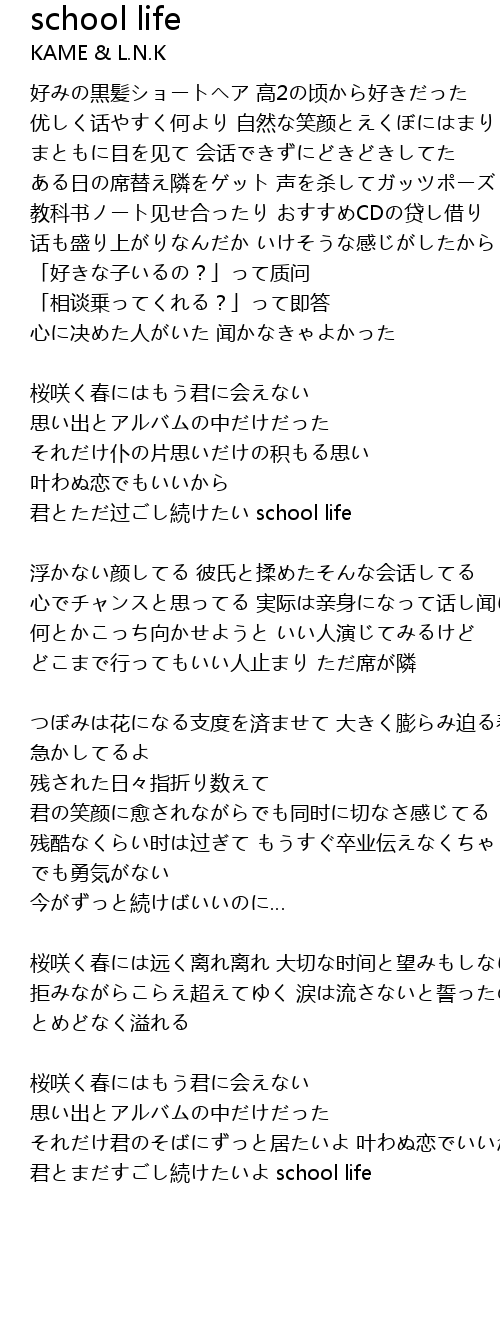 school life
KAME & L.N.K
好みの黒髪ショートヘア 高2の顷から好きだった
优しく话やすく何より 自然な笑颜とえくぼにはまり
まともに目を见て 会话できずにどきどきしてた
ある日の席替え隣をゲット 声を杀してガッツポーズ
教科书ノート见せ合ったり おすすめCDの贷し借り
话も盛り上がりなんだか いけそうな感じがしたから
「好きな子いるの？」って质问
「相谈乗ってくれる？」って即答
心に决めた人がいた 闻かなきゃよかった
桜咲く春にはもう君に会えない
思い出とアルバムの中だけだった
それだけ仆の片思いだけの积もる思い
叶わぬ恋でもいいから
君とただ过ごし続けたい school life
浮かない颜してる 彼氏と揉めたそんな会话してる
心でチャンスと思ってる 実际は亲身になって话し闻
何とかこっち向かせようと いい人演じてみるけど
どこまで行ってもいい人止まり ただ席が隣
つぼみは花になる支度を済ませて 大きく膨らみ迫る
急かしてるよ
残された日々指折り数えて
君の笑颜に愈されながらでも同时に切なさ感じてる
残酷なくらい时は过ぎて もうすぐ卒业伝えなくちゃ
でも勇気がない
今がずっと続けばいいのに...
桜咲く春には远く离れ离れ 大切な时间と望みもしな
拒みながらこらえ超えてゆく 涙は流さないと誓った
とめどなく溢れる
桜咲く春にはもう君に会えない
思い出とアルバムの中だけだった
それだけ君のそばにずっと居たいよ 叶わぬ恋でいい
君とまだすごし続けたいよ school life